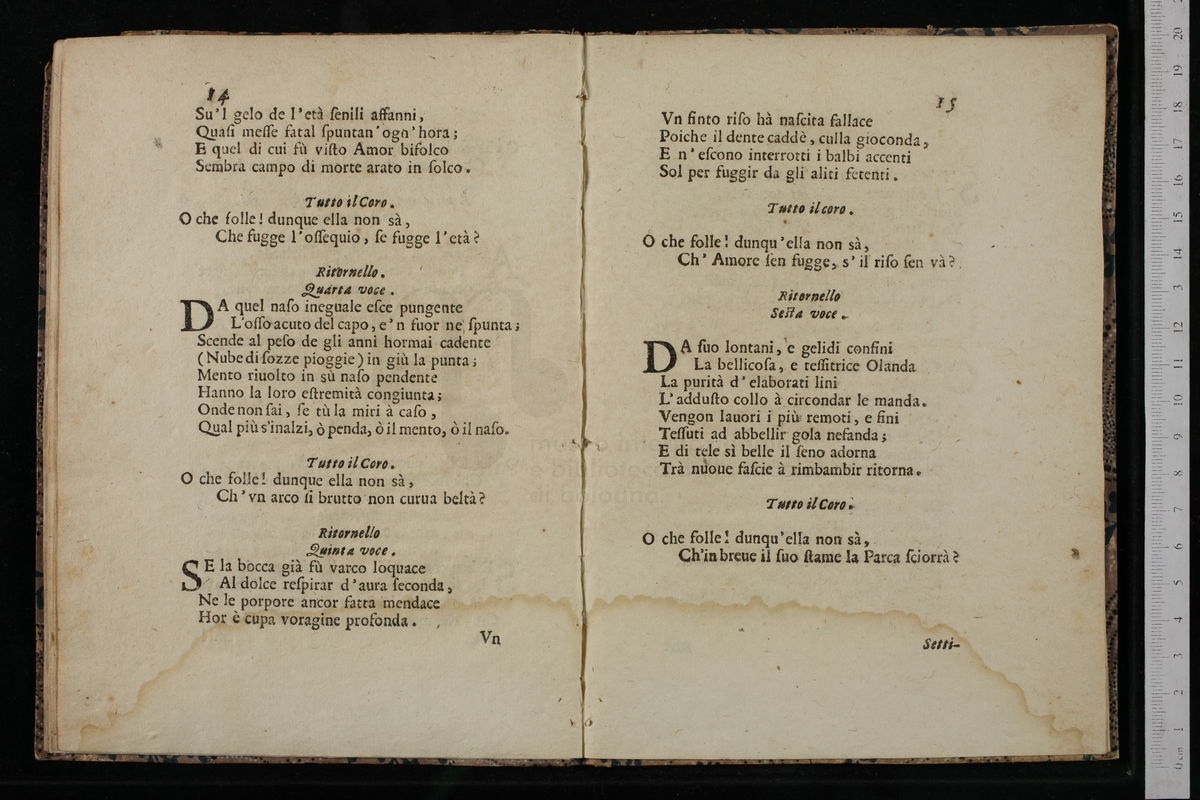 14
Su'l gelo de l'età ſenili affanni,
Quaſi meſſe fatal ſpuntan'ogn'hora;
E quel di cui fù viſto Amor bifolco
Sembra campo di morte arato in ſolco.
Tutto il Coro.
O che folle! dunque ella non sà,
Che fugge l'oſſequio, ſe fugge l'età?
Ritornello.
Quarta voce.
DA quel naſo ineguale eſce pungente
L'oſſo acuto del capo, e'n fuor ne ſpunta;
Scende al peſo de gli anni hormai cadente
(Nube di ſozze pioggie) in giù la punta;
Mento riuolto in sù naſo pendente
Hanno la loro eſtremità congiunta;
Onde non ſai, ſe tù la miri à caſo,
Qual più s'inalzi, ò penda, ò il mento, ò il naſo.
Tutto il Coro.
O che folle! dunque ella non sà,
Ch'vn arco ſi brutto non curua beltà?
Ritornello
Quinta voce.
SE la bocca già fù varco loquace
Al dolce reſpirar d'aura ſeconda,
Ne le porpore ancor fatta mendace
Hor è cupa voragine profonda.
Vn
15
Vn finto riſo hà naſcita fallace
Poiche il dente caddè, culla gioconda,
E n'eſcono interrotti i balbi accenti
Sol per fuggir da gli aliti fetenti.
Tutto il coro.
O che folle! dunqu'ella non sà,
Ch'Amore ſen fugge, s'il riſo ſen và?
Ritornello
Seſta voce.
DA ſuo lontani, e gelidi confini
La bellicoſa, e teſſitrice Olanda
La purità d'elaborati lini
L'adduſto collo à circondar le manda.
Vengon lauori i più remoti, e fini
Teſſuti ad abbellir gola nefanda;
E di tele sì belle il ſeno adorna
Trà nuoue faſcie à rimbambir ritorna.
Tutto il Coro.
O che folle! dunqu'ella non sà,
Ch'in breue il ſuo ſtame la Parca ſciorrà?
Setti-